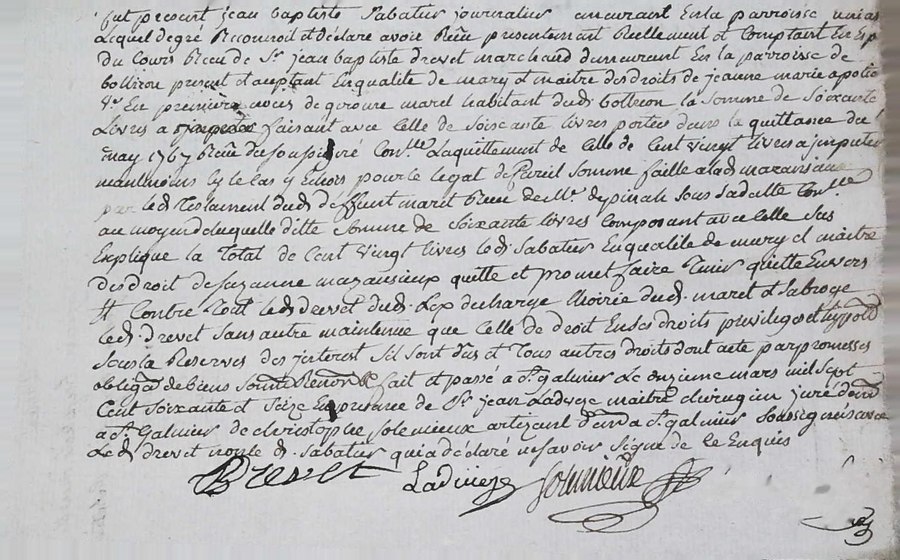 fut pecourt jean baptiste Sabatier journalier demeurant En la parroisse
Lequel de gré Reconnoit et déclare avoir Reçu presentement Reellement et Comptant En Esp
du Cours Receu de Sr jean baptiste drevet marchand demeurant En la parroisse de
present et acceptant En qualité de mary et maitre des droits de jeanne marie
En premieres noces de maret habitant dudt la Somme de Soixante
Livres a faisant avec Celle de Soixante livres portée dans la quittance du
may 1767 Reçue du Soussigné Laquittement de Celle de Cent vingt livres a imputer
pour le legat de Pareil Somme faitte a lad mazausieux
par led Testament dud deffunt maret Receu de Me despinasse Sous Sa datte
au moyen de laquelle ditte Somme de Soixante livres Composant avec Celle Sus
Expliquée la Total de Cent vingt livres ledt Sabatier En qualité de mary et maitre
des droit de Suzanne mazausieux quitte et promet faire Tenir quitte Envers
et Contre Tout ledt drevet dudt Les decharge hoirie dudt maret et Subroge
ledt drevet Sans autre maintenue que Celle de droit En Ses droits privileges et hypoth
Sous la Reserves des interest Sil Sont dus et Tous autres droits dont acte par promesses
obligaon de biens Soumon Renonon fait et passé a St galmier Le onzieme mars mil Sept
Cent Soixante et Seize En presence de Sr jean Ladveze maitre chirurgien juré
a St Galmier de christophe Solemieux artizant a St galmier Soussignés avec
Ledt drevet non led Sabatier qui a déclaré ne Savoir Signé de Ce Enquis
Drevet Ladveze Solemieux